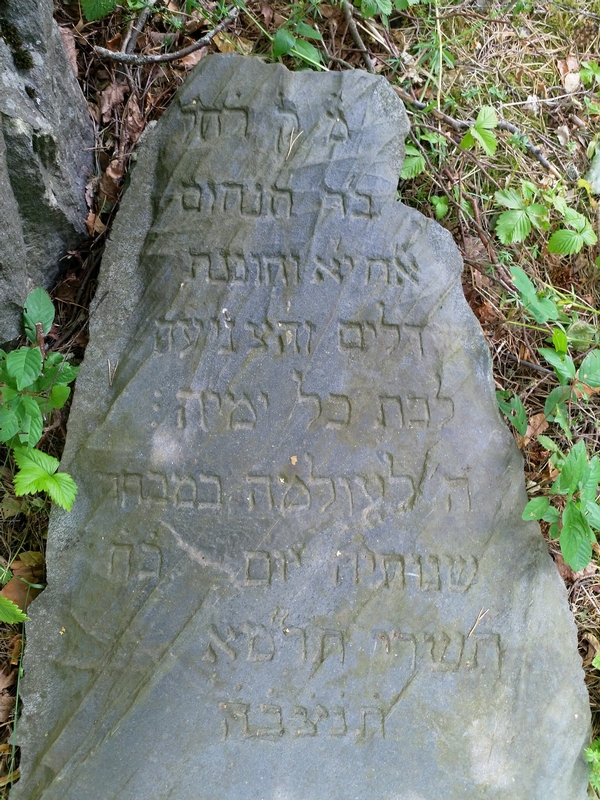 מ ק רחל
בר תנחום
אח יא וחוננת
דלים והצניעה
לכת כל ימיה :
ה' לעולמה במבחר
שנותיה יום כח
תשרי תרמא
תנצבה